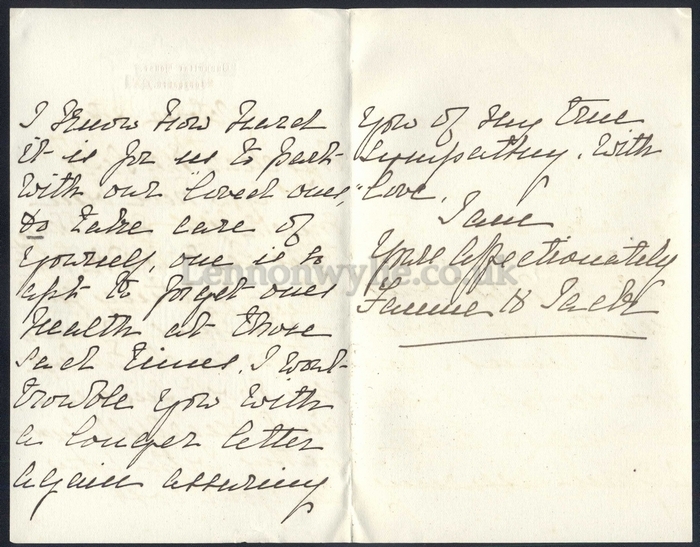 I know how hard
it is for us to part
with our "loved ones,"
do take care of
yourself, one is so
apt to forget ones
health at those
sad times. I wont
trouble you with
a longer letter
again assuring
you of my true
sympathy. With
love,
I am
Yours affectionately
Fannie & Jack
Lennonwylie.co.uk